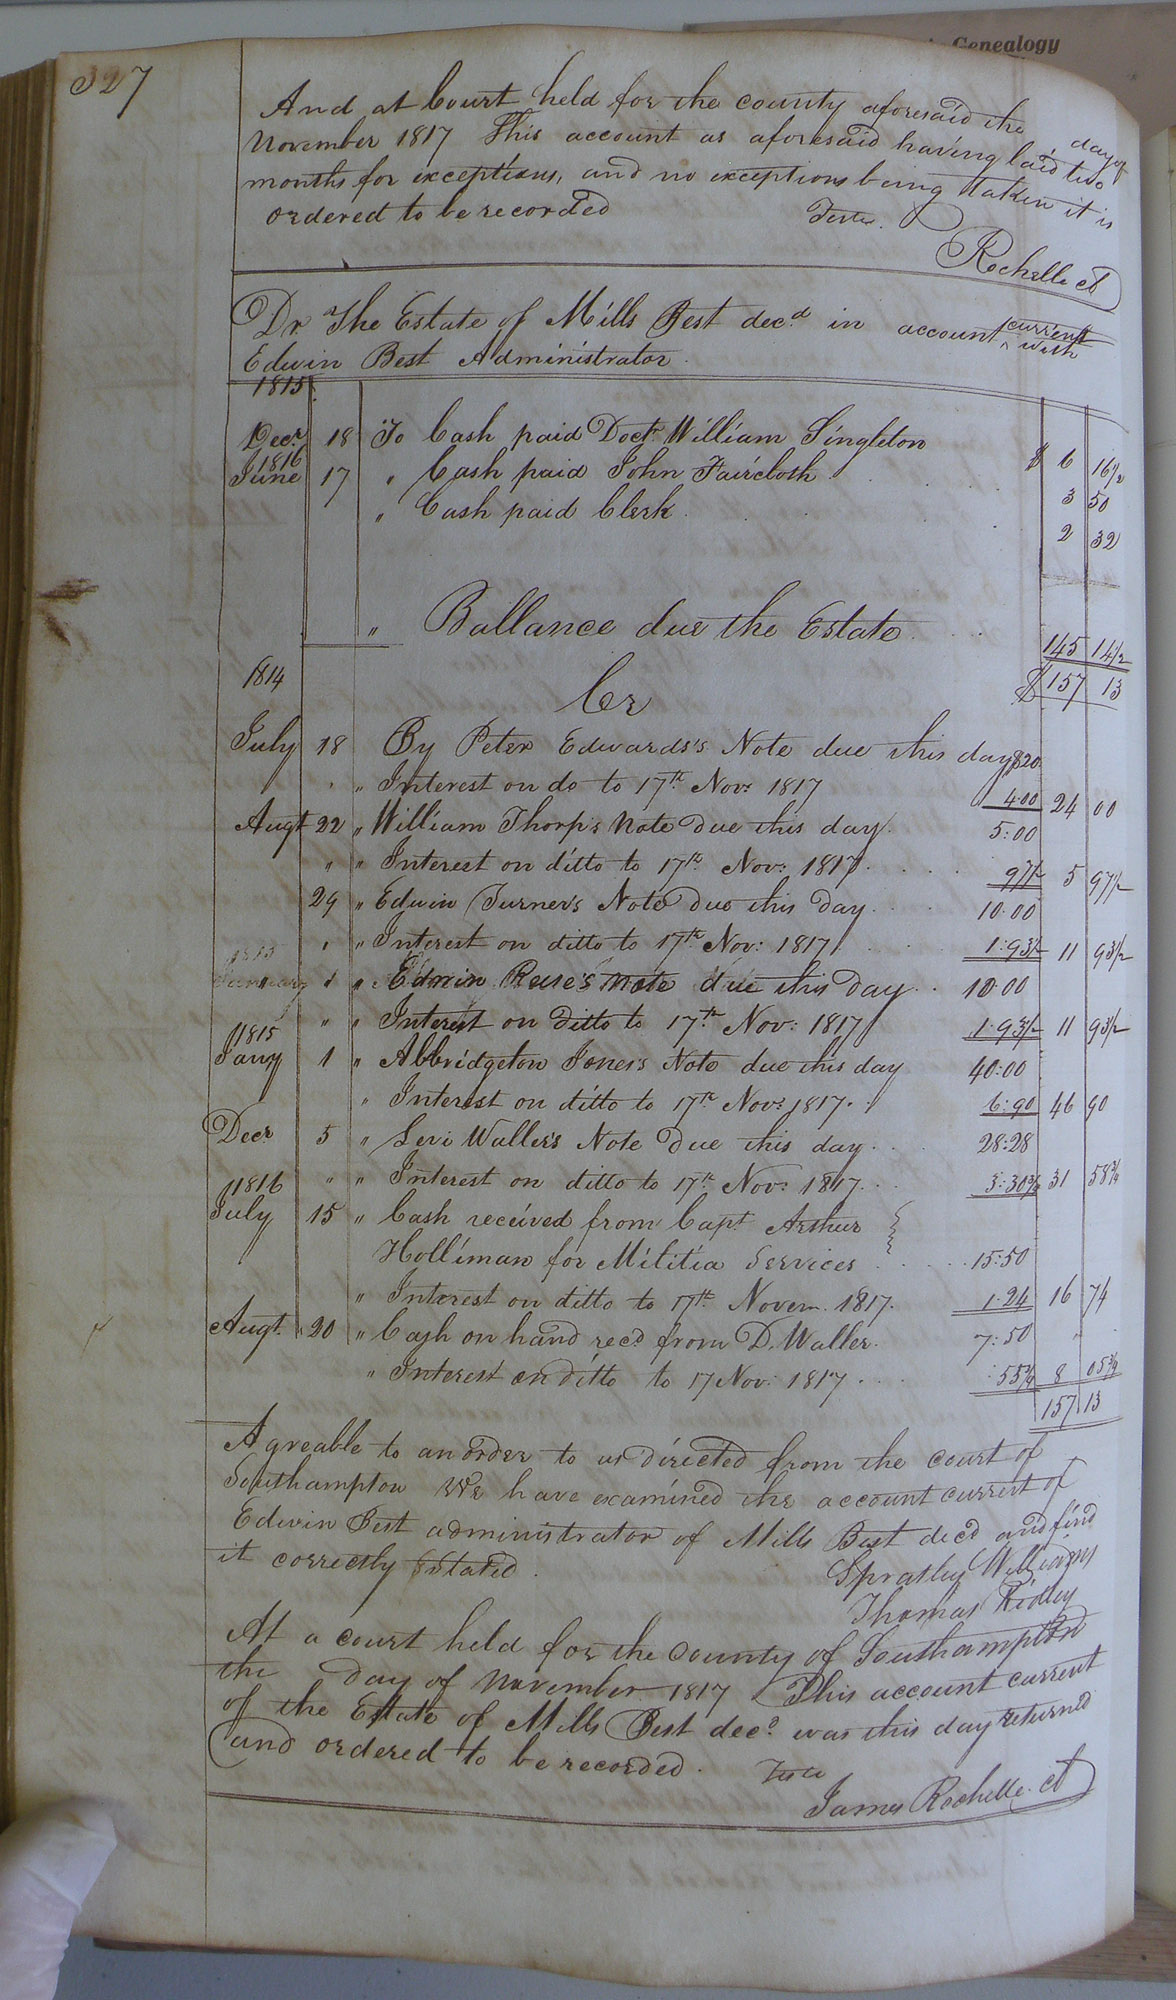 327
Genealogy
And at Court held for the county aforesaid the day of
November 1817 This account as aforesaid having laid two
months for exceptions, and no exceptions being taken it is
ordered to be recorded Teste.
Rochelle ct
Dr The Estate of Mills Best decd. in account current with
Edwin Best Administrator
1815
Decr 18 To Cash paid Doctr William Singleton $ 6 16 1/2
1816
June 17 " Cash paid John Faircloth 3 50
" Cash paid Clerk 2 32
" Ballance due the Estate 145 14 1/2
$ 157 13
1814 Cr
July 18 By Peter Edwards's Note due this day $20
" Interest on do to 17th Novr 1817 4.00 24 00
Augt 22 " William Thorp's Note Due this day 5:00
" " Interest on ditto to 17th Nov: 1817 97 1/2 5 97 1/2
29 " Edwin Turner's Note Due this day 10.00
" " Interest on ditto to 17th Nov: 1817 1:93 1/2 11 93 1/2
1815
January 1 " Edwin Reese's Note due this day 10.00
" " Interest on Ditto to 17th Nov: 1817 1.93 1/2 11 93 1/2
1815
Jany 1 " Abbridgeton Jones's Note due this day 40:00
" Interest on ditto to 17th Novr 1817 6:90 46 90
Decr 5 " Levi Waller's Note Due this day 28:28
" " Interest on ditto to 17th Nov: 1817 3:30 3/4 31 58 3/4
1816
July 15 " Cash received from Capt. Arthur
Holliman for Militia Services 15:50
" Interest on ditto to 17th Novem. 1817. 1.24 16 74
Augt. 20 " Cash on hand recd from D. Waller. 7:50 "
" Interest on ditto to 17 Nov: 1817 55 3/4 8 05 3/4
157 13
Agreable to an order to us directed from the court of
Southampton We have examined the account current of
Edwin Best administrator of Mills Best decd and find
it correctly Stated.
Spratley Williams
Thomas Ridley
At a court held for the County of Southampton
the day of November 1817 This account current
of the Estate of Mills Best decd. was this day returned
and ordered to be recorded. Teste
James Rochelle ct